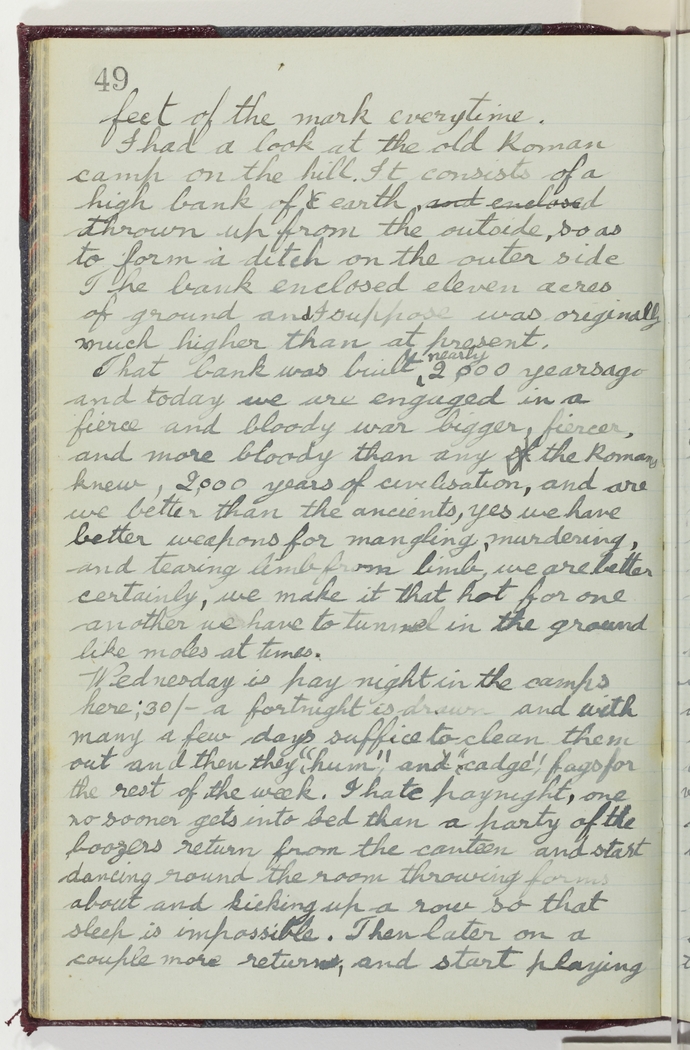 49
feet of the mark everytime.
I had a look at the old Roman
camp on the hill. It consists of a
high bank of & earth, and enclosed
thrown up from the outside, so as
to form a ditch on the outer side
The bank enclosed eleven acres
of ground and I suppose was originally
much higher than at present.
That bank was built, nearly 2,000 years ago
and today we are engaged in a
fierce and bloody war bigger, fiercer,
and more bloody than any of the Romans
knew, 2,000 years of civilisation, and are
we better than the ancients, yes we have
better weapons for mangling, murdering,
and tearing limb from limb, we are better
certainly, we make it that hot for one
another we have to tunnel in the ground
like moles at times.
Wednesday is pay night in the camps
here; 30/- a fortnight is drawn and with
many a few days suffice to clean them
out and then they "hum" and "cadge" fags for
the rest of the week. I hate paynight, one
no sooner gets into bed than a party of the
boozers return from the canteen and start
dancing round the room throwing forms
about and kicking up a row so that
sleep is impossible. Then later on a
couple more return, and start playing